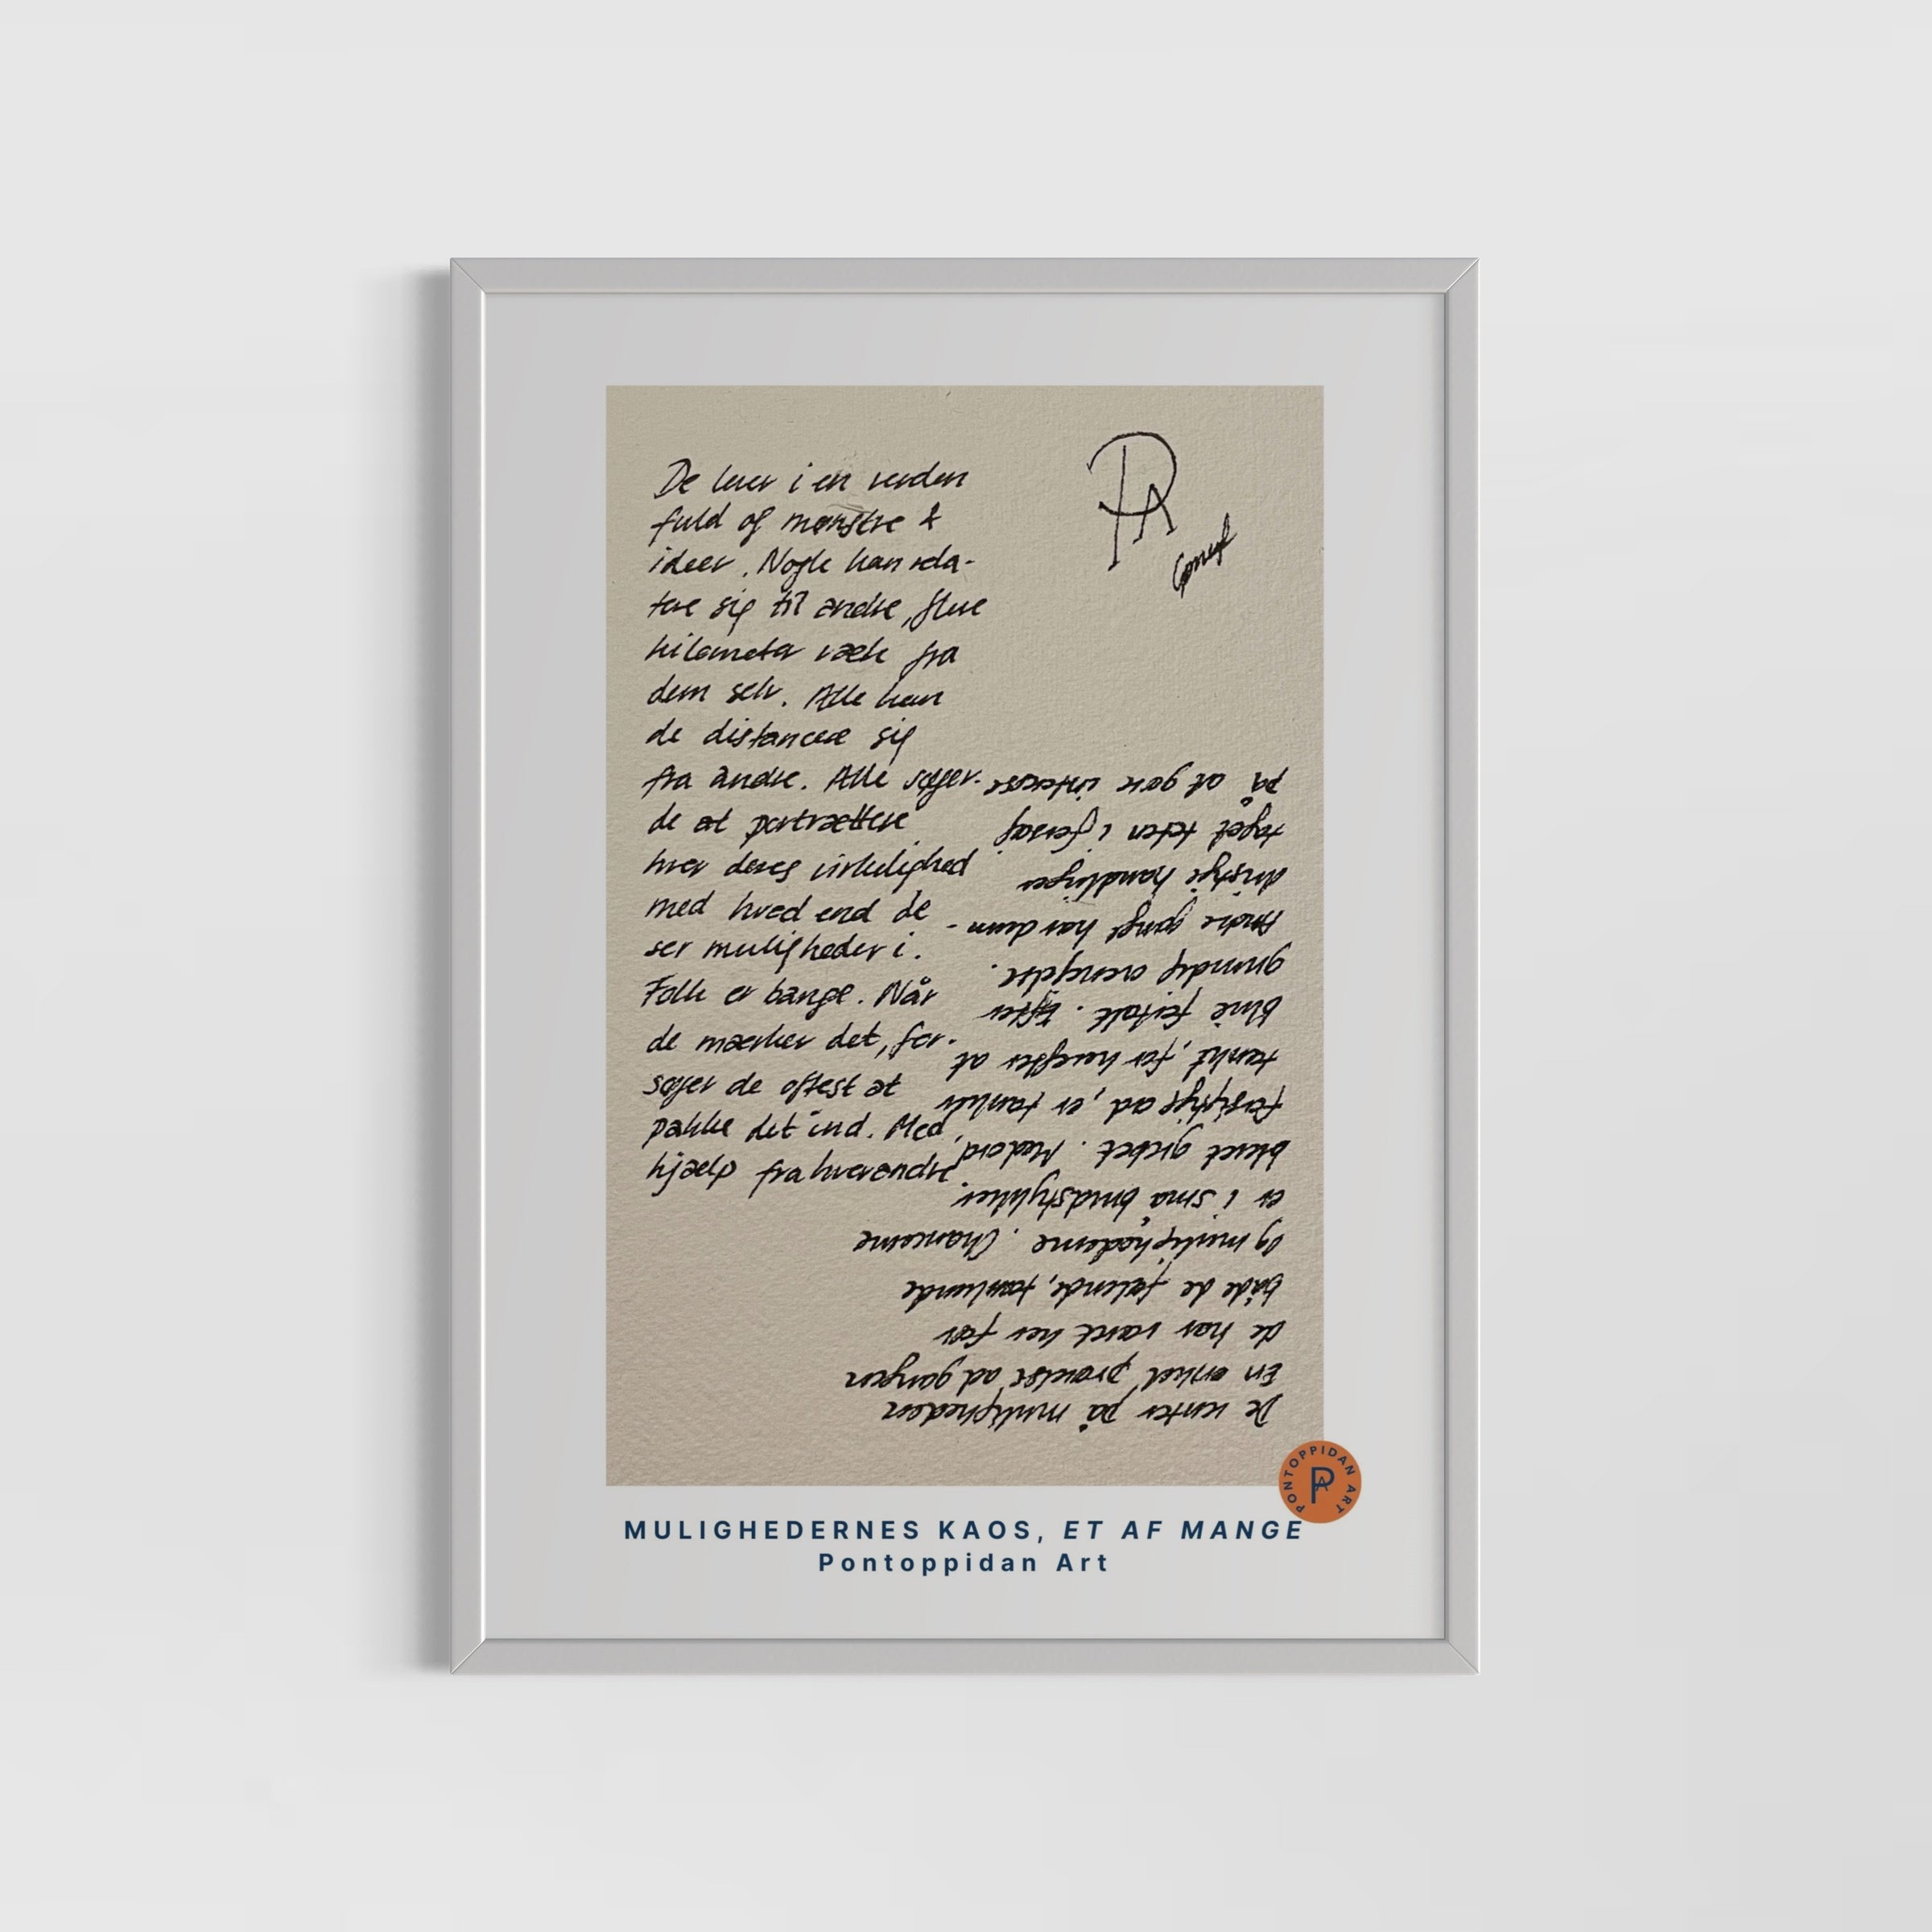 De lever i en verden
fuld af mønstre &
ideer. Nogle kan rela-
tere sig til andre, flere
kilometer væk fra
dem selv. Alle kan
de distancere sig
fra andre. Alle søger
de at portrættere
hver deres virkelighed
med hvad end de
ser muligheder i.
Folk er bange. Når
de mærker det, for-
søger de oftest at
pakke det ind. Med
hjælp fra hverandre.
De venter på muligheden
En enkel prøvelse ad gangen
de har været her før
både de følende, tænkende
og mulighederne. Chancerne
er i små brudstykker
blevet grebet. Med ord,
forsigtige ad, er tanker
tænkt, for herefter at
blive fortalt. Efter
grundig overvejelse.
Andre gange har dum-
dristige handlinger
taget teten i forsøg
på at gøre interesse
PA
MULIGHEDERNES KAOS, ET AF MANGE
Pontoppidan Art
PONTOPPIDAN ART
PA